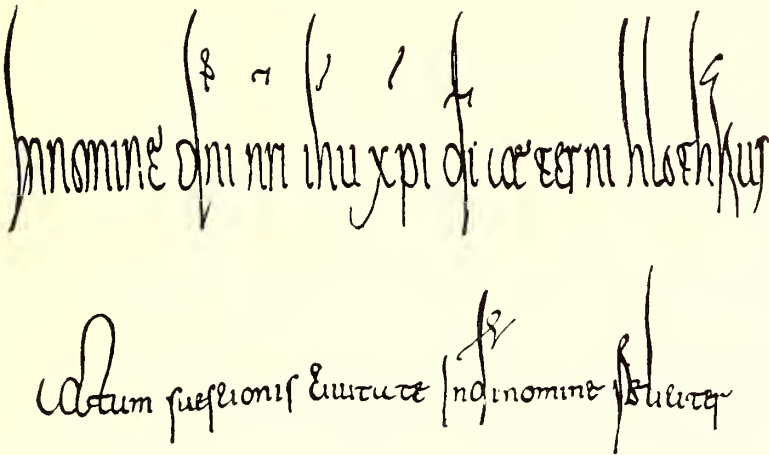 In nomine dni nri ihu xpi di aeterni hlotharius
actum suessionis civitate In di nomine feliciter